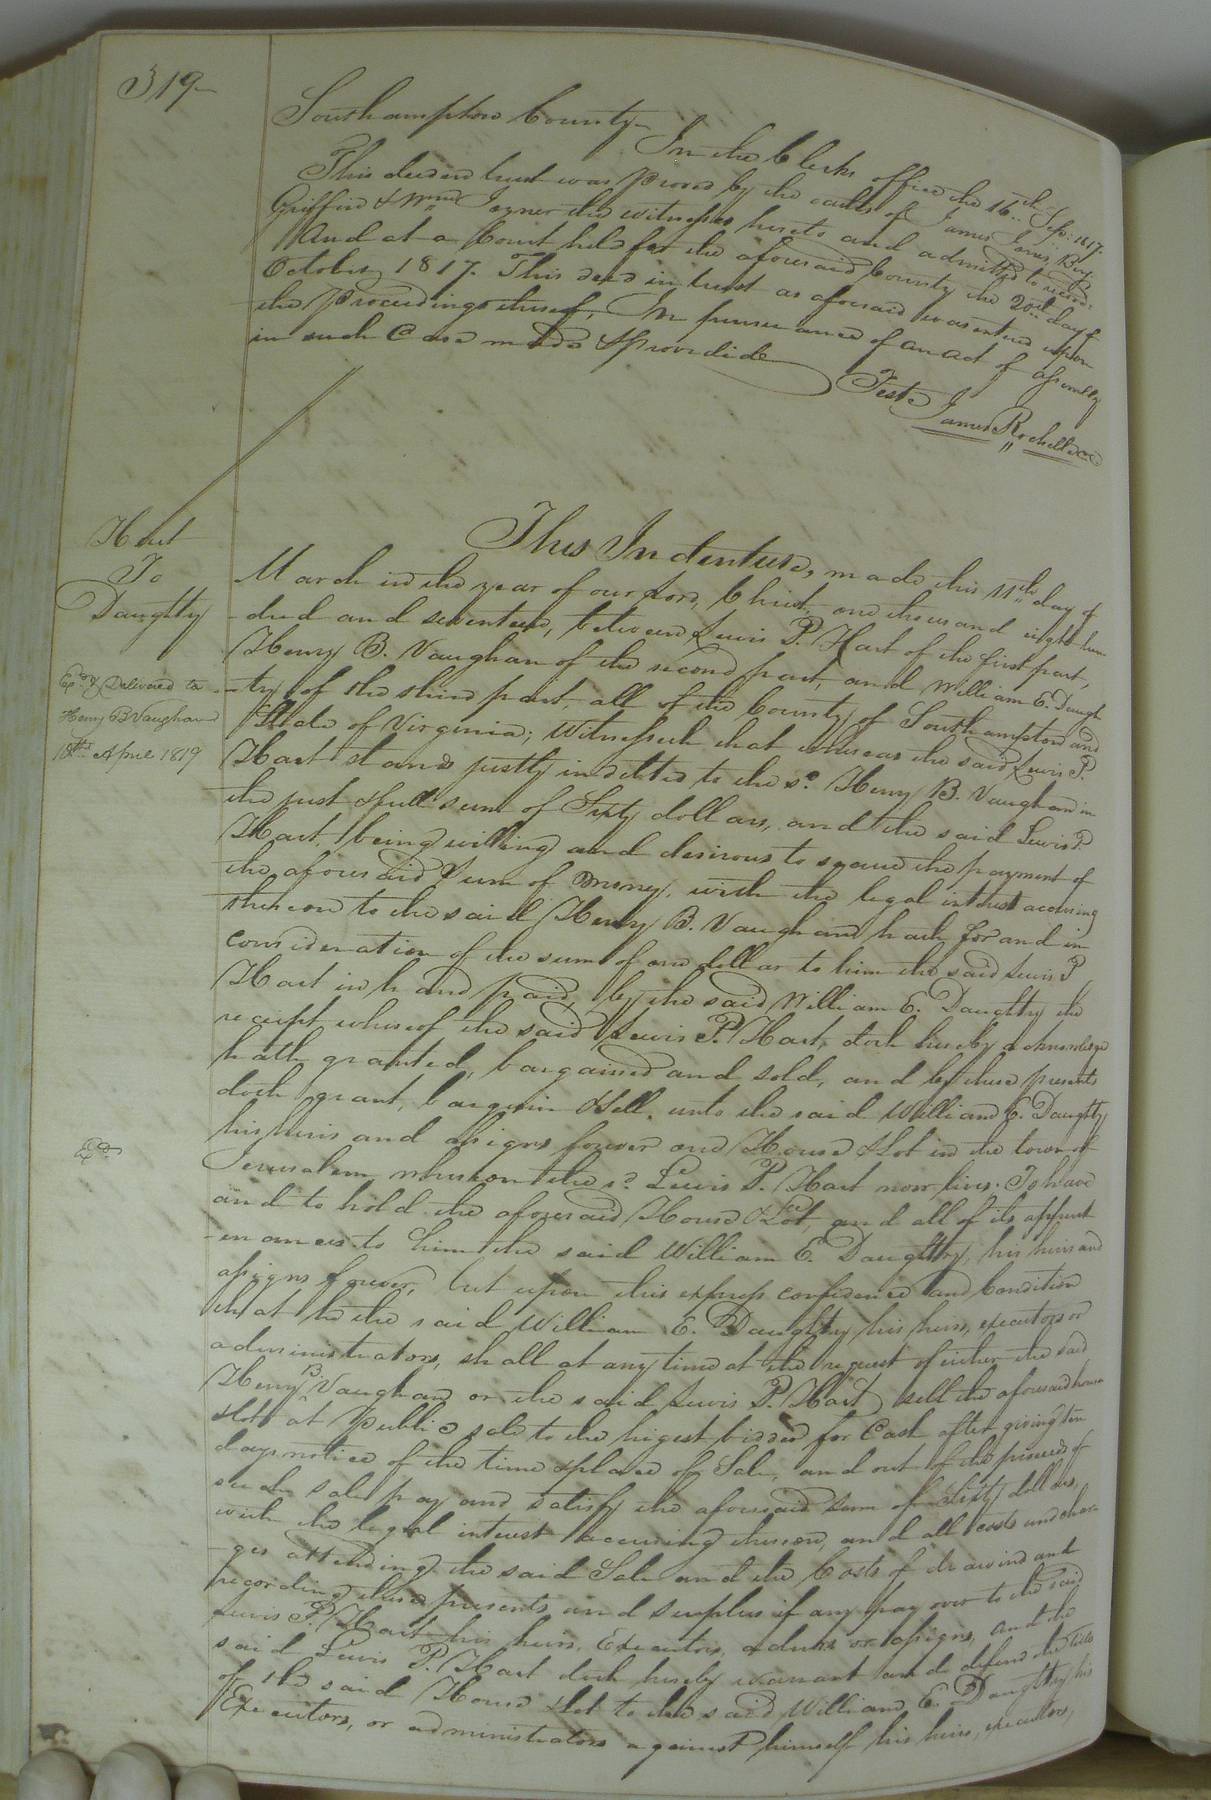 319
Southampton County
In the Clerks office the 16th Sep: 1817.
This deed in trust was proved by the oaths of James Jones, Benj.
Griffin & Wm. Joyner the witnesses hereto and admitted to record.
And at a Court held for the aforesaid County the 20th day of
October 1817. This deed in trust as aforesaid was entered upon
the proceedings thereof, In pursuance of an act of assembly
in such Case made & provided
Teste James Rochelle CC
Hart
To
Daughtry
Exd. & Delivered to
Henry B Vaughan
18th April 1819
This Indenture, made this 11th day of
March in the year of our Lord, Christ, one thousand eight hun
-dred and seventeen, between Lewis P. Hart of the first part,
Henry B. Vaughan of the second part, and William E. Daugh
-try of the third part, all of the County of Southampton and
State of Virginia; Witnesseth that whereas the said Lewis P.
Hart stands justly indebted to the sd. Henry B. Vaughan in
the just & full sum of Sixty dollars, and the said Lewis P.
Hart, being willing and desirous to secure the payment of
the aforesaid Sum of money, with the legal interest accruing
thereon to the said Henry B. Vaughan hath for and in
consideration of the sum of one dollar to him the said Lewis P
Hart in hand paid, by the said William E. Daughtry the
receipt whereof the said Lewis P. Hart, doth hereby acknowledge
hath granted, bargained and sold, and by these presents
doth grant, bargain & sell, unto the said William E. Daughtry
his heirs and assigns forever one House & Lot in the town of
Jerusalem whereon the sd. Lewis P. Hart now lives. To have
and to hold the aforesaid House & Lot, and all of its appurt
-enances to him the said William E. Daughtry, his heirs and
assigns forever, but upon this express confidence and Condition
that he the said William E. Daughtry his heirs, executors or
administrators, shall at any time at the request of either the said
Henry B. Vaughan or the said Lewis P. Hart sell the aforesaid house
& lot at public sale to the higest bidder for Cash after giving ten
days notice of the time & place of Sale, and out of the proceeds of
such sale pay and satisfy the aforesaid Sum of Sixty dollars,
with the legal interest accruing thereon, and all costs and char
-ges attending the said Sale and the Costs of drawing and
recording these presents and surplus if any pay over to the said
Lewis P. Hart his heirs, Executors, admrs or assigns, and the
said Lewis P. Hart doth hereby warrant and defend the title
of the said House & lot to the said William E. Daughtry his
Executors, or administrators against himself his heirs, executors,